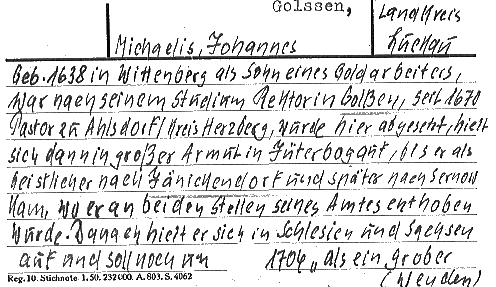 Golssen,
Landkreis
Michaelis, Johannes
Luckau
Geb. 1638 in Wittenberg als Sohn eines Goldarbeiters,
war nach seinem Studium Rektor in Golßen, seit 1670
Pastor zu Ahlsdorf/Kreis Herzberg, wurde hier abgesetzt, hielt
sich dann in großer Armut in Jüterbog auf, bis er als
Geistlicher nach Jänickendorf und später nach Sernow
kam, wo er an beiden Stellen seines Amtes enthoben
wurde. Danach hielt er sich in Schlesien und Sachsen
auf und soll noch um 1706 „als ein grober
Reg. 10. Stichnote 1. 50. 232000. A. 803. S. 4062
(wenden)